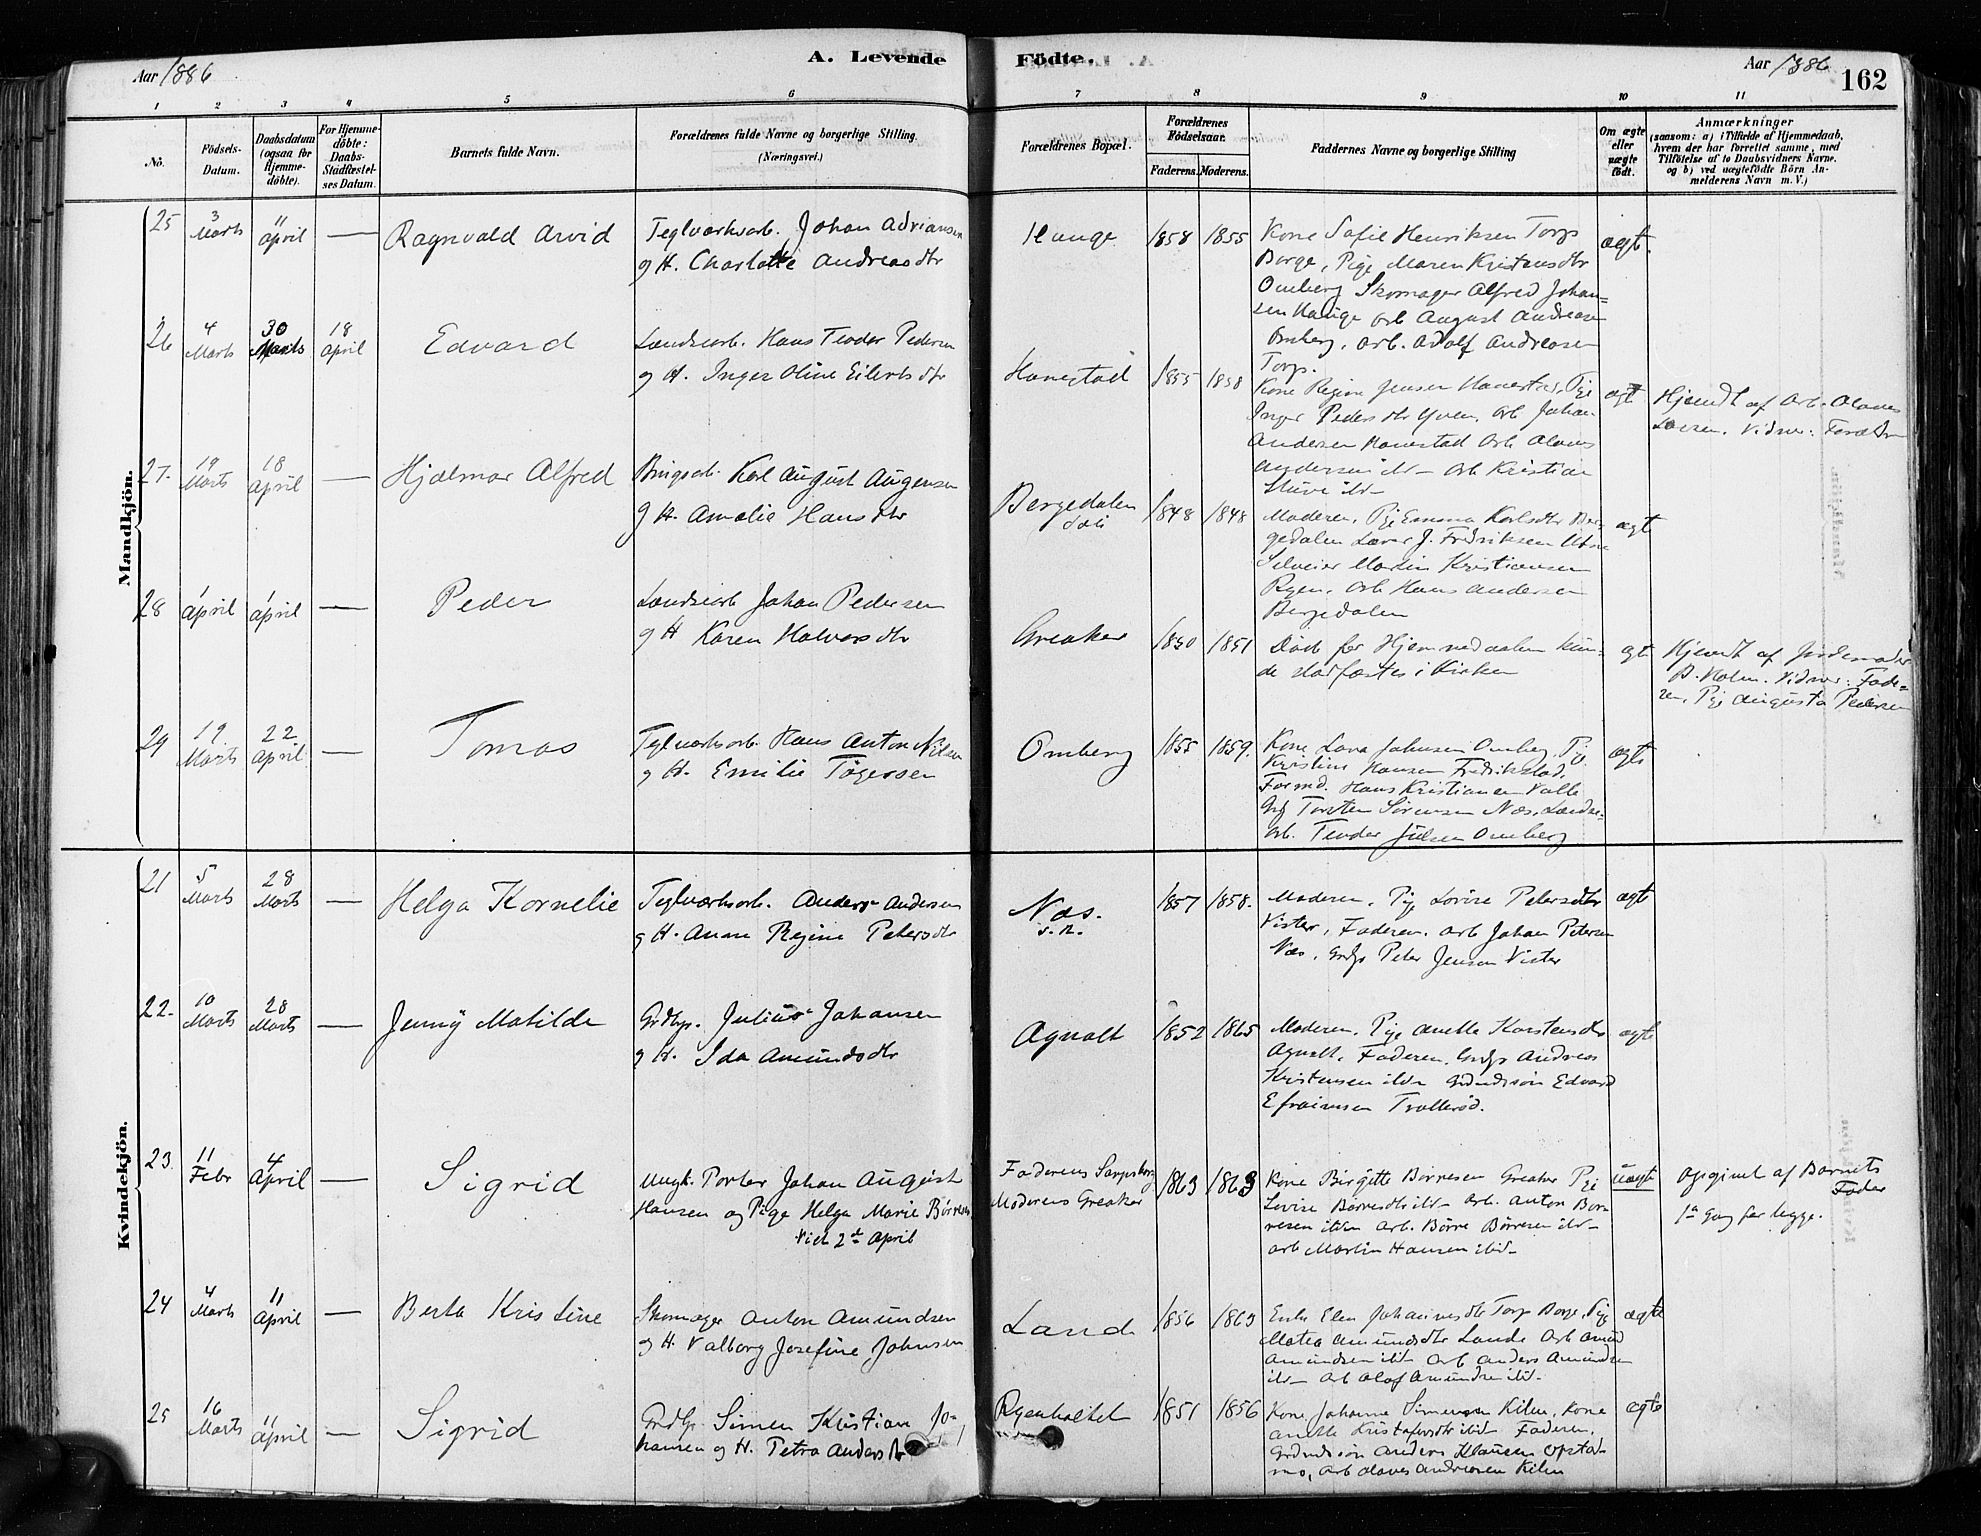 A. Levende Födte.
Aar 1886
Aar 1886 162
1 2 3 4 5 6 7 8 9 10 11
No.
Födsels-
Datum.
Daabsdatum
(ogsaa for
Hjemme-
döbte).
For Hjemme-
döbte:
Daabs-
Stadfæstel-
ses Datum.
Barnets fulde Navn.
Forældrenes fulde Navne og borgerlige Stilling.
(Næringsvei.)
Forældrenes Bopæl.
Forældrenes
Födselsaar.
Faderens. Moderens.
Faddernes Navne og borgerlige Stilling
Om ægte
eller
uægte
födt.
Anmærkninger
(saasom: a) i Tilfælde af Hjemmedaab,
hvem der har forrettet samme, med
Tilföielse af to Daabsvidners Navne.
og b) ved uægtefödte Börn An-
melderens Navn m. V.)
Mandkjön.
25 3 Marts 11 April — Ragnvald Arvid
Teglværksarb. Johan Adriansen
og H. Charlotte Andreasdtr
Hauge 1858 1855
Kone Sofie Henriksen Torp
Borge, Pige Maren Kristensdtr
Omberg Skomager Alfred Johan-
sen Hauge Arb August Andreasen
Omberg, Arb. Adolf Andreasen
Torp.
ægt.
26 4 Marts 30 Marts 18 April Edvard
Landsarb. Hans Teodor Pedersen
og H. Inger Oline Eilertsdtr
Hanestad 1855 1858
Kone Regine Jensen Hanestad, Pige
Inger Pedersdtr Yven, Arb Johan
Andersen Hanestad Arb Olaves
Andersen ibd— Arb Kristian
ibd—
ægt
Hjemdt af Arb. Olaves
Vidner: Foræld
27. 19 Marts 18 April — Hjalmar Alfred
Karl August Augensen
og H. Amalie Hansdtr
Bergedalen
1848 1848
Moderen, Pige Emma Karlsdtr Ber-
gedalen Lærer J. Fredriksen
Martin Kristiansen
Ryen, Arb Hans Andersen
Bergedalen
ægt
28 1 April 1 April — Peder
Landsarb Johan Pedersen
og H Karen Halvorsdtr
Greaker 1850 1851
Døde før Hjemmedaaben kun-
de stadfæstes i Kirken
ægt
Hjemdt af Jordemoder
Holm. Vidner: Fade-
ren, Pige Augusta Pedersen
29 19 Marts 22 April — Tomas
Teglværksarb. Hans Anton Nilsen
og H. Emilie Tøgersen
Omberg 1855 1859.
Kone Lava Johnsen Omberg, Pige
Kristine Hansen Fredrikstad,
Formd. Hans Kristiansen Valle
Torsten Sørensen Næs, Landse-
arb. Teodor Julsen Omberg
ægte
Kvindekjön.
21 5 Marts 28 Marts — Helga Kornelie
Teglværksarb. Anders Andersen
og H. Anne Regine Petersdtr
Næs. 1857 1858.
Moderen, Pige Lovise Petersdtr
Vister, Faderen. Arb Johan Petersen
Næs, Grdbr Peter Jensen Vister
ægt
22. 10 Marts 28 Marts — Jenny Matilde
Grdbr. Julius Johansen
og H. Ida Amundsdtr
Agnalt 1852 1865
Moderen, Pige Anette Karstensdtr
Agnalt, Faderen, Grdbr Andreas
Kristensen ibd— Grdmdssøn Edvard
Efraimsen Trollerød.
ægte
23. 11 Febr 4 April — Sigrid
Ungk. Porter Johan August
Hansen og Pige Helga Marie Børresen
Viet 2de April
Faderens Sarpsborg
Moderens Greaker
1863 1863
Kone Birgitte Børresen Greaker Pige
Lovise Børresdtr ibd— Arb. Anton Bør-
resen ibden Arb. Børre Børresen ibd—
Arb Martin Hansen ibid—
uægte
Opgivet af Barnets
Fader
1ste Gang før begge.
24 4 Marts 11 April — Berta Kristine
Skomager Anton Amundsen
og H. Valborg Josefine Johnsen
Lande 1856 1863
Enke Elen Johannesdtr Torp Borge, Pige
Matea Amundsdtr Lande Arb Amund
Amundsen ibd— Arb Anders Amundsen
ibd— Arb Olaf Amundsen ibid—
ægte
25 16 Marts 11 April — Sigrid
Grdbr. Simen Kristian Jo-
hansen og H. Petra Andersdtr
Ryenholtet 1851 1856
Kone Johanne Simensen Kilen, Kone
Anette Kristofersdtr ibid Faderen,
Grdmdssøn Anders Klausen Opstad-
mo, Arb Olaves Andreasen Kilen
ægte